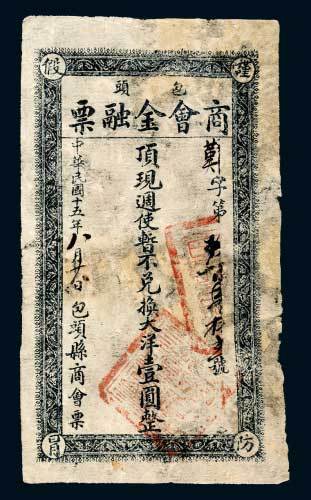 謹防假冒
包頭
商會金融票
字第 號
頂現週使暫不兌換大洋壹圓整
中華民國十五年八月 日包頭縣商會票